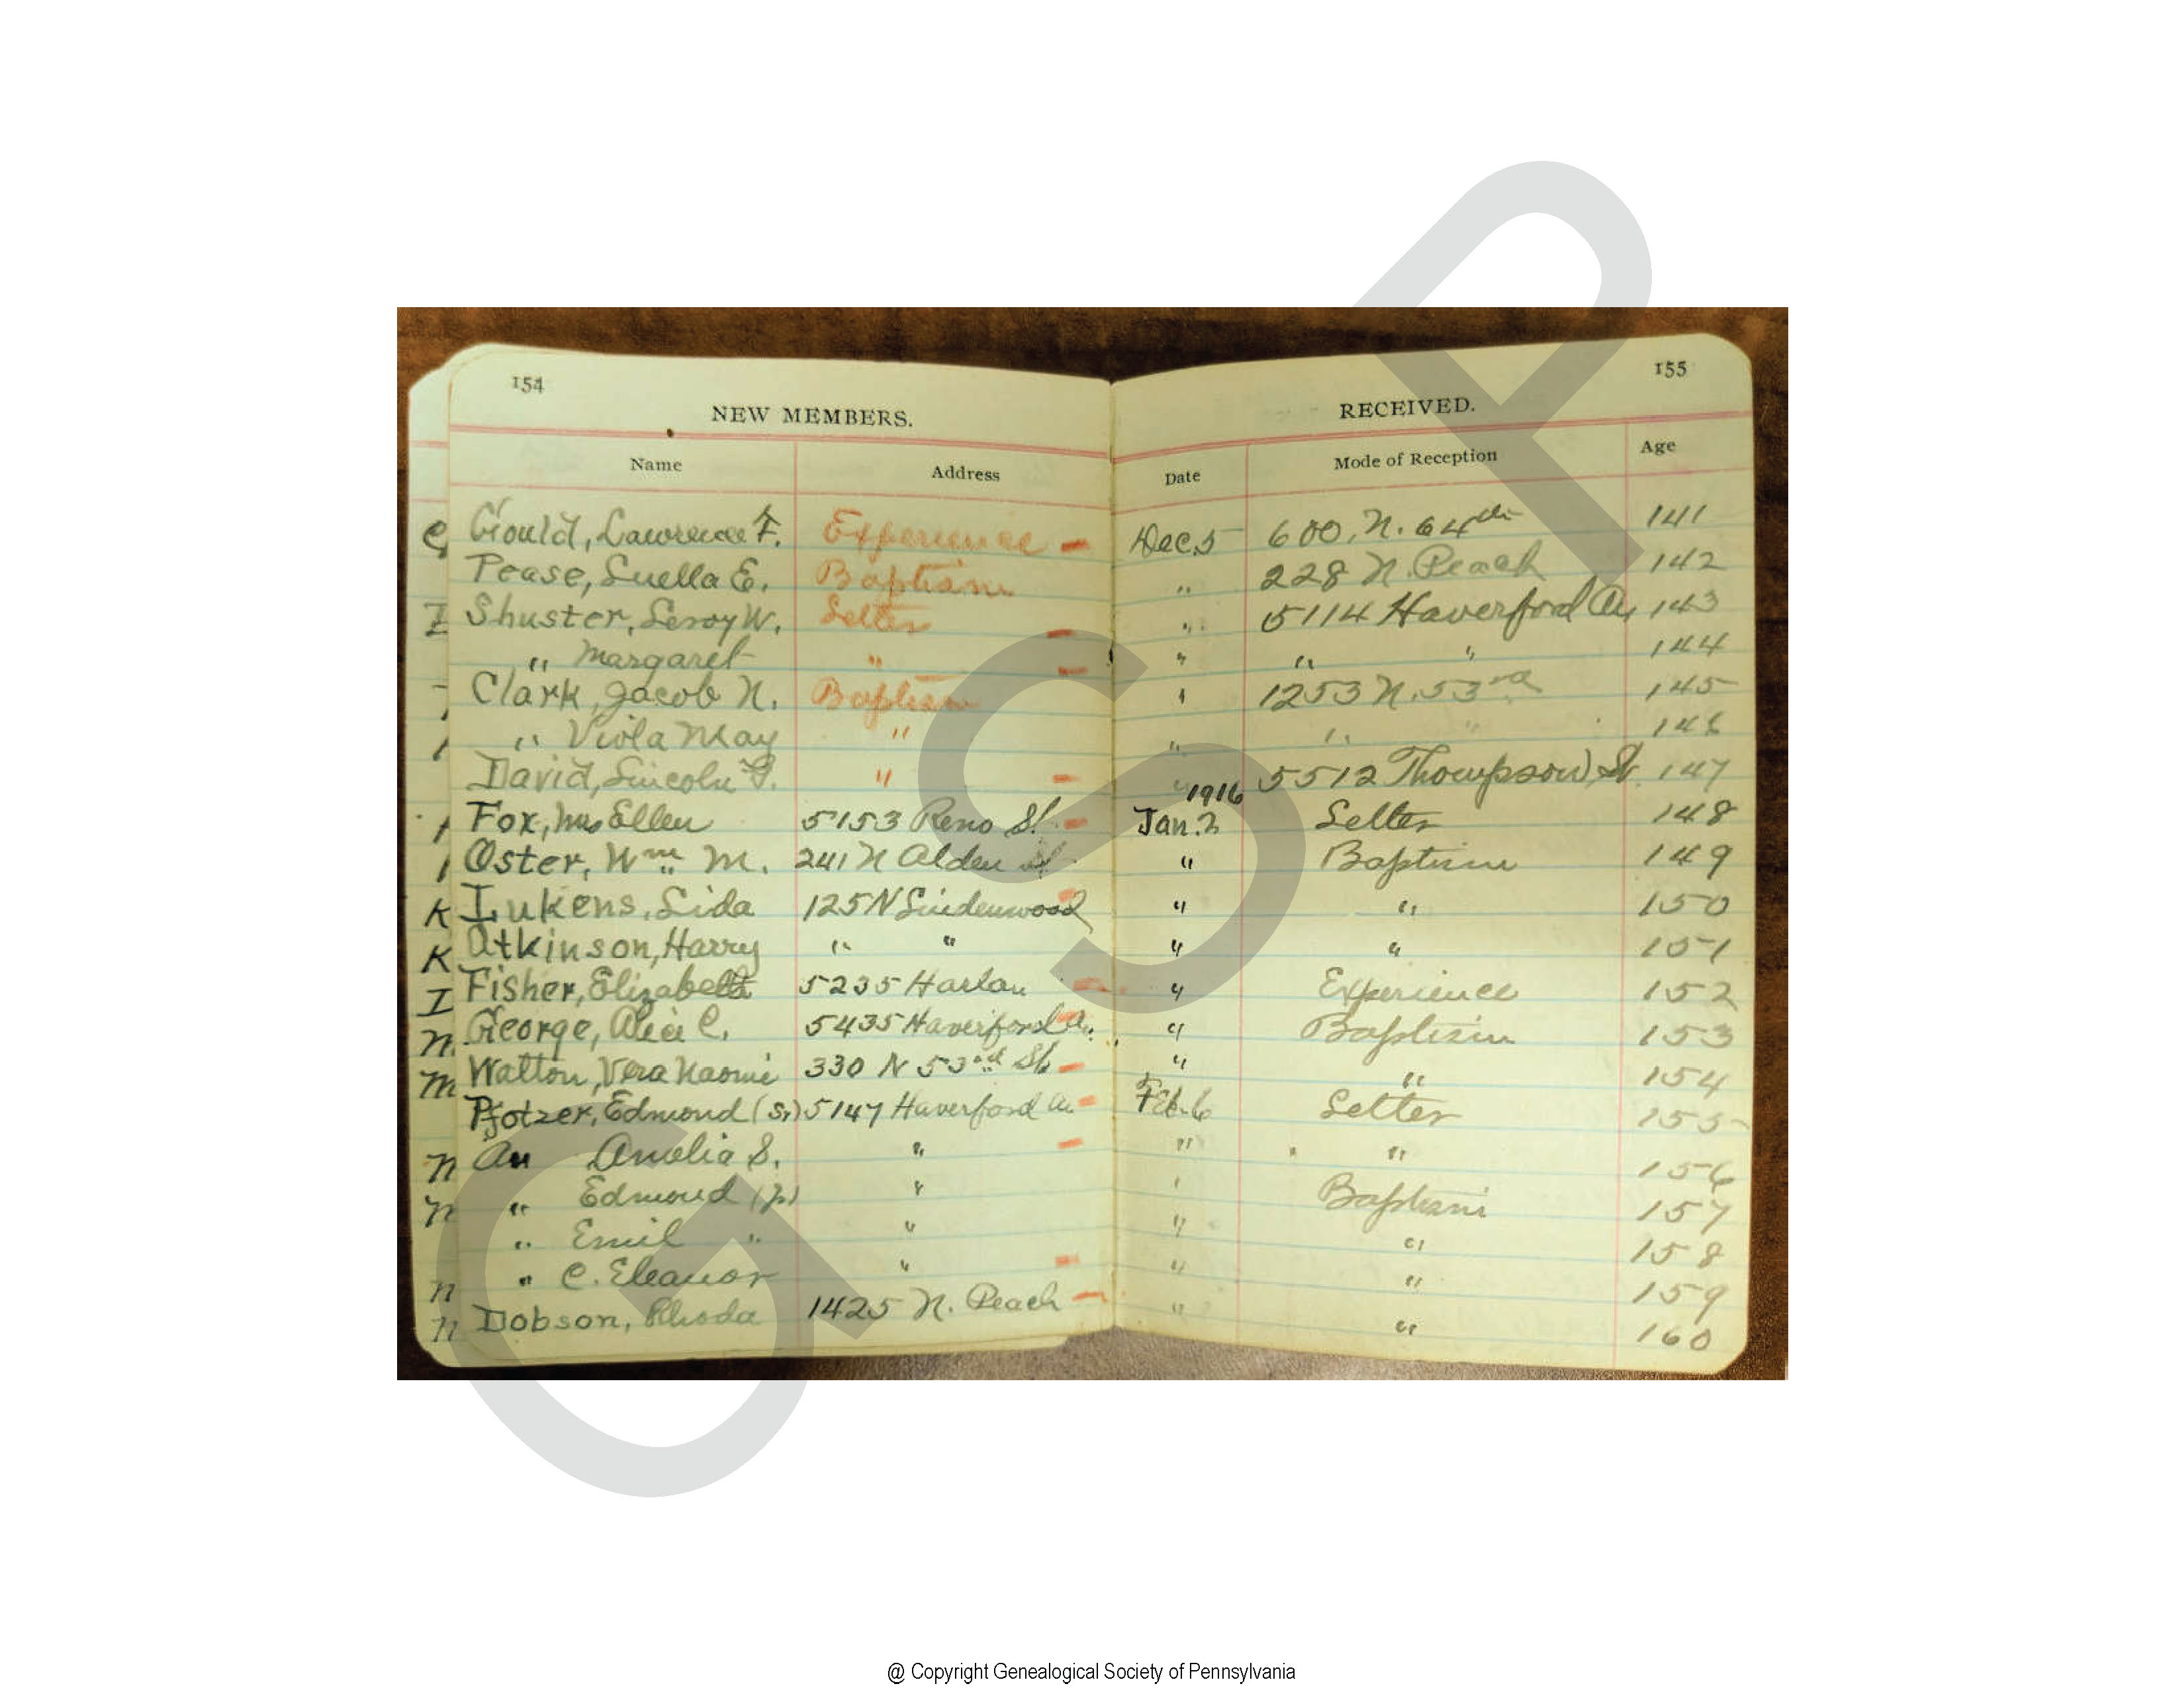 154
NEW MEMBERS.
Name Address
Gould, Lawrence F. Experience -
Pease, Luella E. Baptism
Shuster, Leroy W. Letter -
" Margaret " -
Clark, Jacob N. Baptism
" Viola May "
David, Lincoln G. " -
Fox, Mrs Ellen 5153 Reno St. -
Oster, Wm M. 241 N Alden St
Lukens, Lida 125 N Lindenwood -
Atkinson, Harry " "
Fisher, Elizabeth 5235 Harlan -
George, Alice C. 5435 Haverford Av. -
Walton, Vera Naomi 330 N 53rd St. -
Pfotzer, Edmond (Sr) 5147 Haverford Av -
Amelia S. " -
" Edmond (Jr) "
" Emil " "
" C. Eleanor " -
Dobson, Rhoda 1425 N. Peach -
155
RECEIVED.
Date Mode of Reception Age
Dec. 5 600 N. 64th 141
" 228 N. Peach 142
" 5114 Haverford Av 143
" " " 144
" 1253 N. 53rd 145
" " " 146
" 5512 Thompson St. 147
1916
Jan. 2 Letter 148
" Baptism 149
" " 150
" " 151
" Experience 152
" Baptism 153
" " 154
Feb. 6 Letter 155
" " 156
" Baptism 157
" " 158
" " 159
" " 160
GSP
@ Copyright Genealogical Society of Pennsylvania